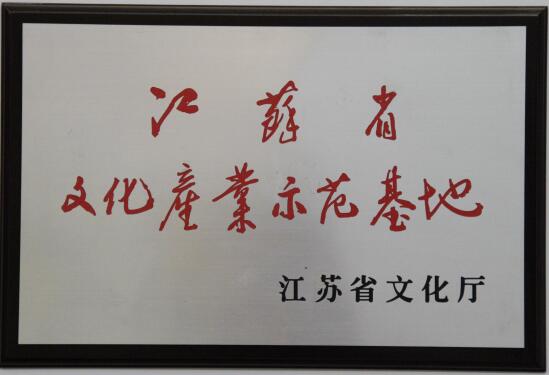 江蘇省
文化產業示范基地
江苏省文化厅